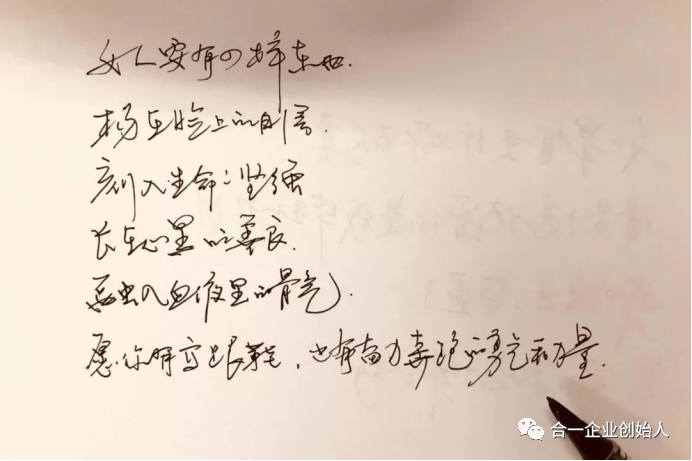 女人要有四样东西.
扬在脸上的自信.
刻入生命的坚强
长在心里的善良.
融入血液里的骨气.
愿你,也有努力奔跑的勇气和力量.
合一企业创始人